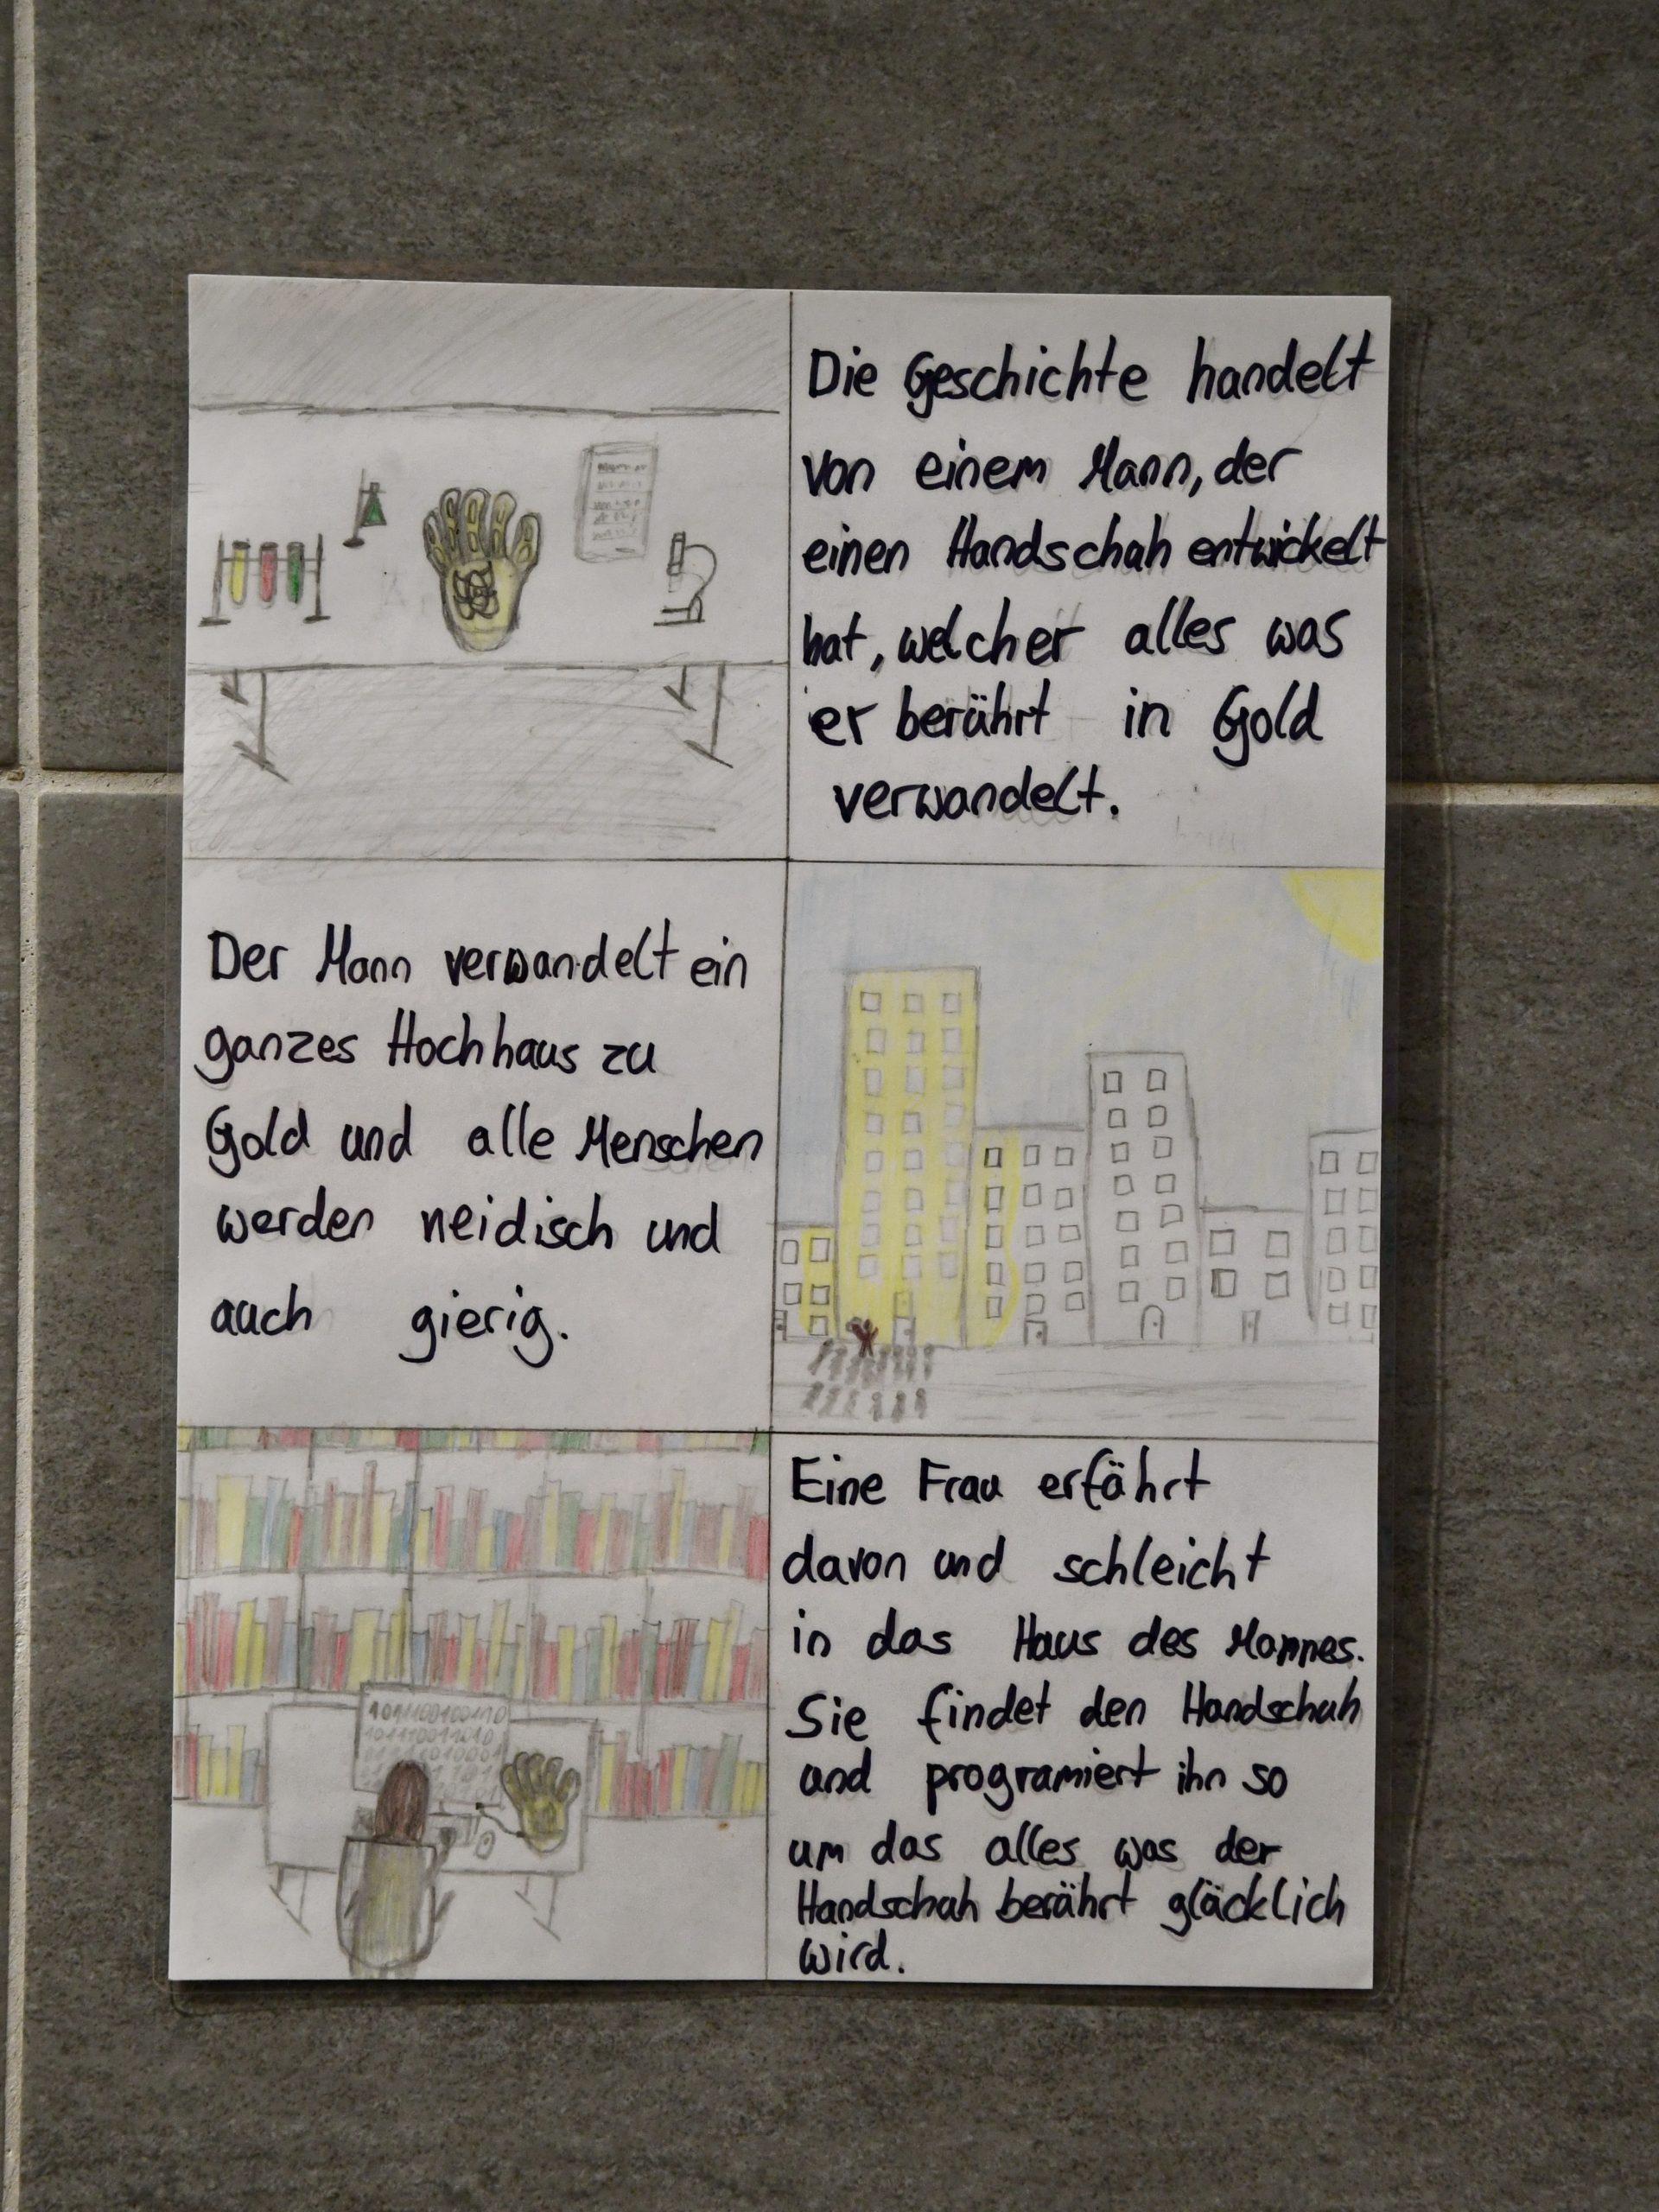 Die Geschichte handelt
von einem Mann, der
einen Handschuh entwickelt
hat, welcher alles was
er berührt in Gold
verwandelt.
Der Mann verwandelt ein
ganzes Hochhaus zu
Gold und alle Menschen
werden neidisch und
auch gierig.
Eine Frau erfährt
davon und schleicht
in das Haus des Mannes.
Sie findet den Handschuh
und programiert ihn so
um das alles was der
Handschuh berührt glücklich
wird.